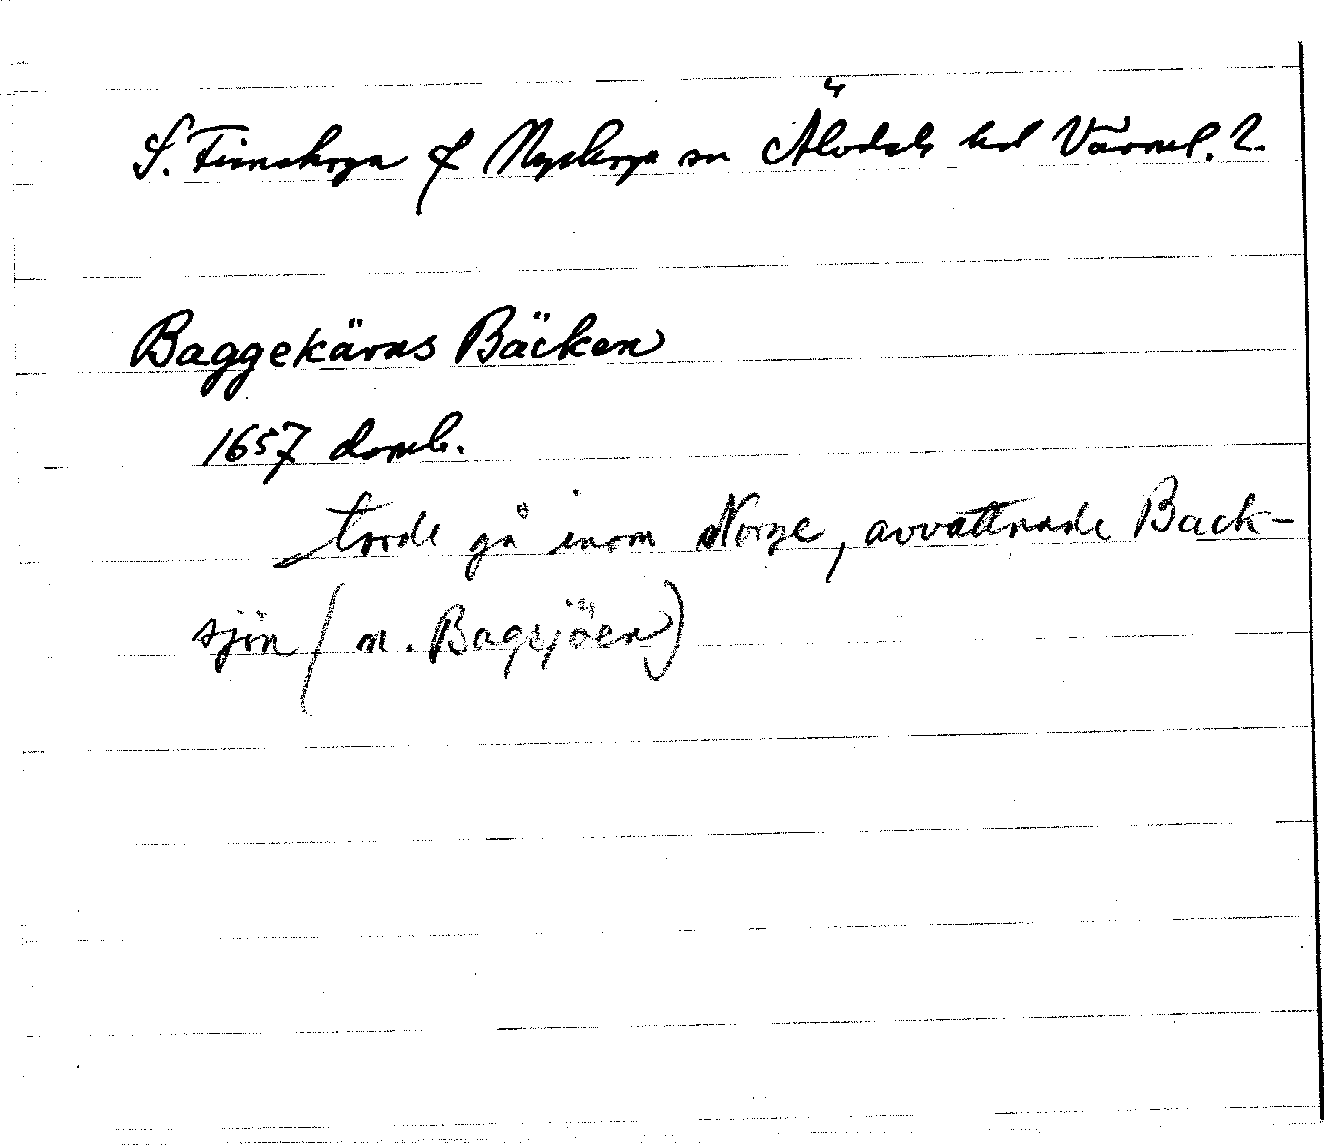 S. Finnskoga f Nyskoga sn Älvdals hd Värml. l.
Baggekärns Bäcken
1657 domb.
torde gå inom Norge, avvattnade Back-
sjön (n. Bagsjöen)